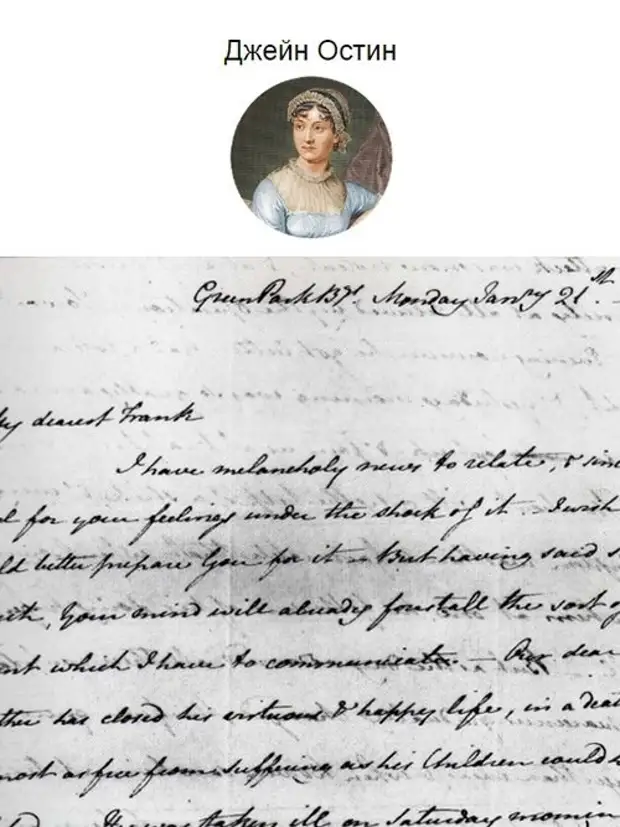 Джейн Остин
Green Park Bgs. Monday Jan:ry 21st.
My dearest Frank
I have melancholy news to relate, & sin
l for your feelings under the shock of it. – I wish
ld better prepare You for it. – But having said s
Your mind will already forestall the sort of
nt which I have to communicate. – Our dear
ther has closed his virtuous & happy life, in a deat
most as free from suffering as his Children could
was taken ill on Saturday mornin